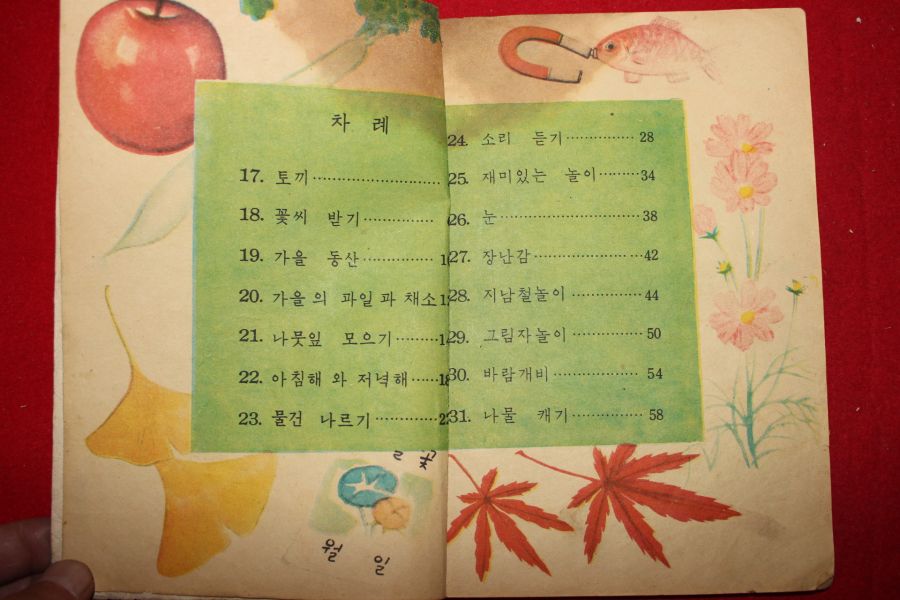 차 례
17. 토끼
18. 꽃씨 받기
19. 가을 동산
20. 가을의 파일과 채소
21. 나뭇잎 모으기
22. 아침해 와 저녁해
23. 물건 나르기
24. 소리 듣기 28
25. 재미있는 놀이 34
26. 눈 38
27. 장난감 42
28. 지남철놀이 44
29. 그림자놀이 50
30. 바람개비 54
31. 나물 캐기 58
월 일